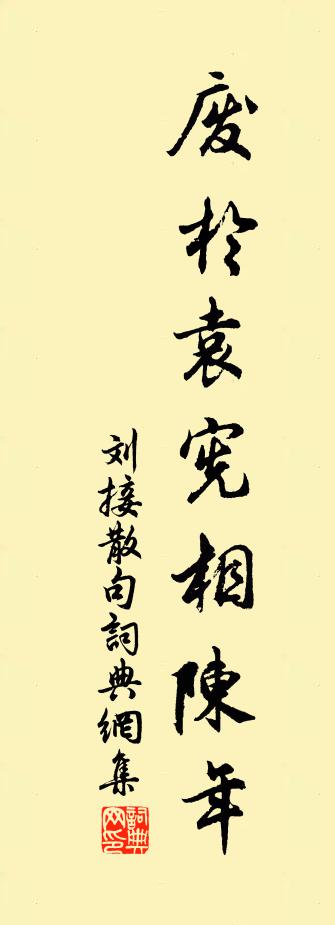 废於袁宪相陳年
刘接散句詞典網集
詞典网印